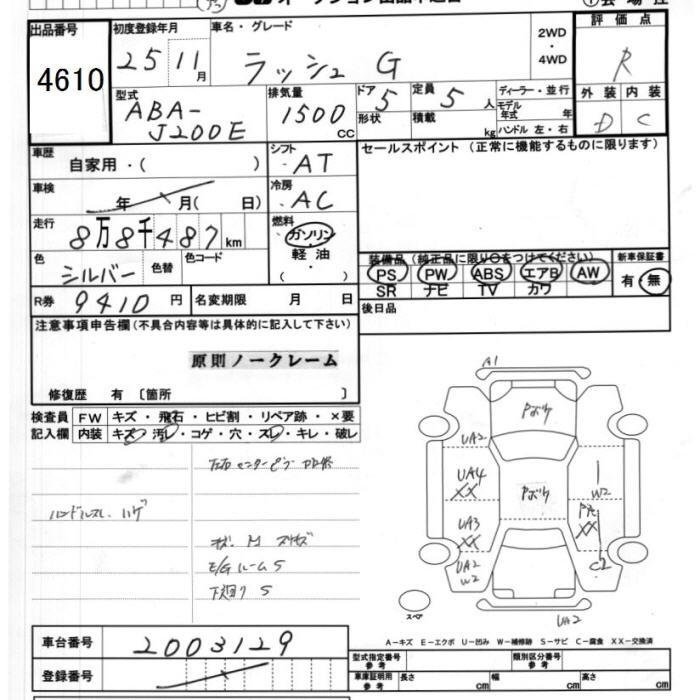 出品番号
4610
初度登録年月
25 11月
車名・グレード
ラッシュ G
2WD
・
4WD
評価点
R
外装 内装
D C
型式
ABA-
J200E
排気量
1500 CC
ドア 5
形状
定員 5人
積載 kg
ディーラー・並行
モデル年式 年
ハンドル 左・右
車歴
自家用・( )
シフト
AT
セールスポイント (正常に機能するものに限ります)
車検
年 月( 日)
冷房
AC
走行
8万8千487km
燃料
ガソリン
軽油
( )
色
シルバー
色替
色コード
装備品 (純正品に限り○をつけてください)
PS PW ABS エアB AW
SR ナビ TV カワ
新車保証書
有・無
R券 9410円
名変期限 月 日
後日品
注意事項申告欄(不具合内容等は具体的に記入して下さい)
原則ノークレーム
修復歴 有〔箇所 〕
検査員記入欄
FW キズ・飛石・ヒビ割・リペア跡・×要
内装 キズ・汚レ・コゲ・穴・スレ・キレ・破レ
ハンドルスレ ハゲ
E/Gルーム S
下廻り S
A1
Pボケ
UA2
UA4
XX
W2
Pボケ
UA3
XX
XX
UA2
W2
C2
UA2
スペア
A-キズ E-エクボ U-凹み W-補修跡 S-サビ C-腐食 XX-交換済
車台番号 2003129
登録番号
型式指定番号 参考
類別区分番号 参考
車庫証明用 参考
長さ cm
幅 cm
高さ cm